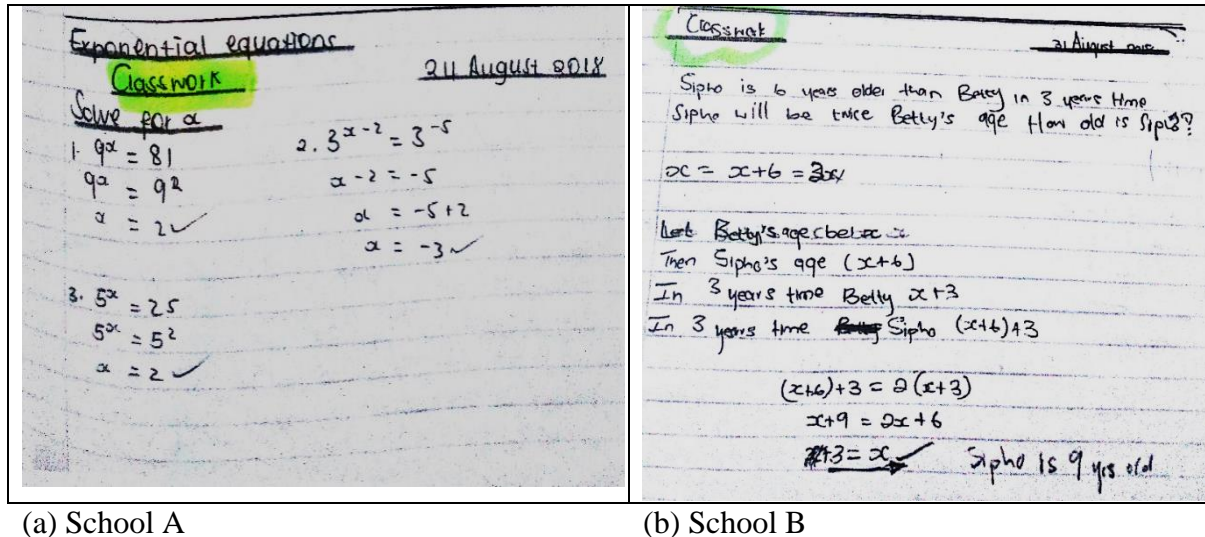 Exponential equations
Classwork
Solve for x
1. 9^x = 81
9^x = 9^2
x = 2 ✓
2. 3^{x-2} = 3^{-5}
x - 2 = -5
x = -5 + 2
x = -3 ✓
3. 5^x = 25
5^x = 5^2
x = 2 ✓
August 2018
(a) School A
Classwork
31 August 2018
Sipho is 6 years older than Betty in 3 years time
Sipho will be twice Betty's age How old is Sipho?
x = x+6 =
Let Betty's age be x
Then Sipho's age (x+6)
In 3 years time Betty x+3
In 3 years time Sipho (x+6)+3
(x+6)+3 = 2(x+3)
x+9 = 2x+6
3 = x ✓
Sipho is 9 yrs old
(b) School B